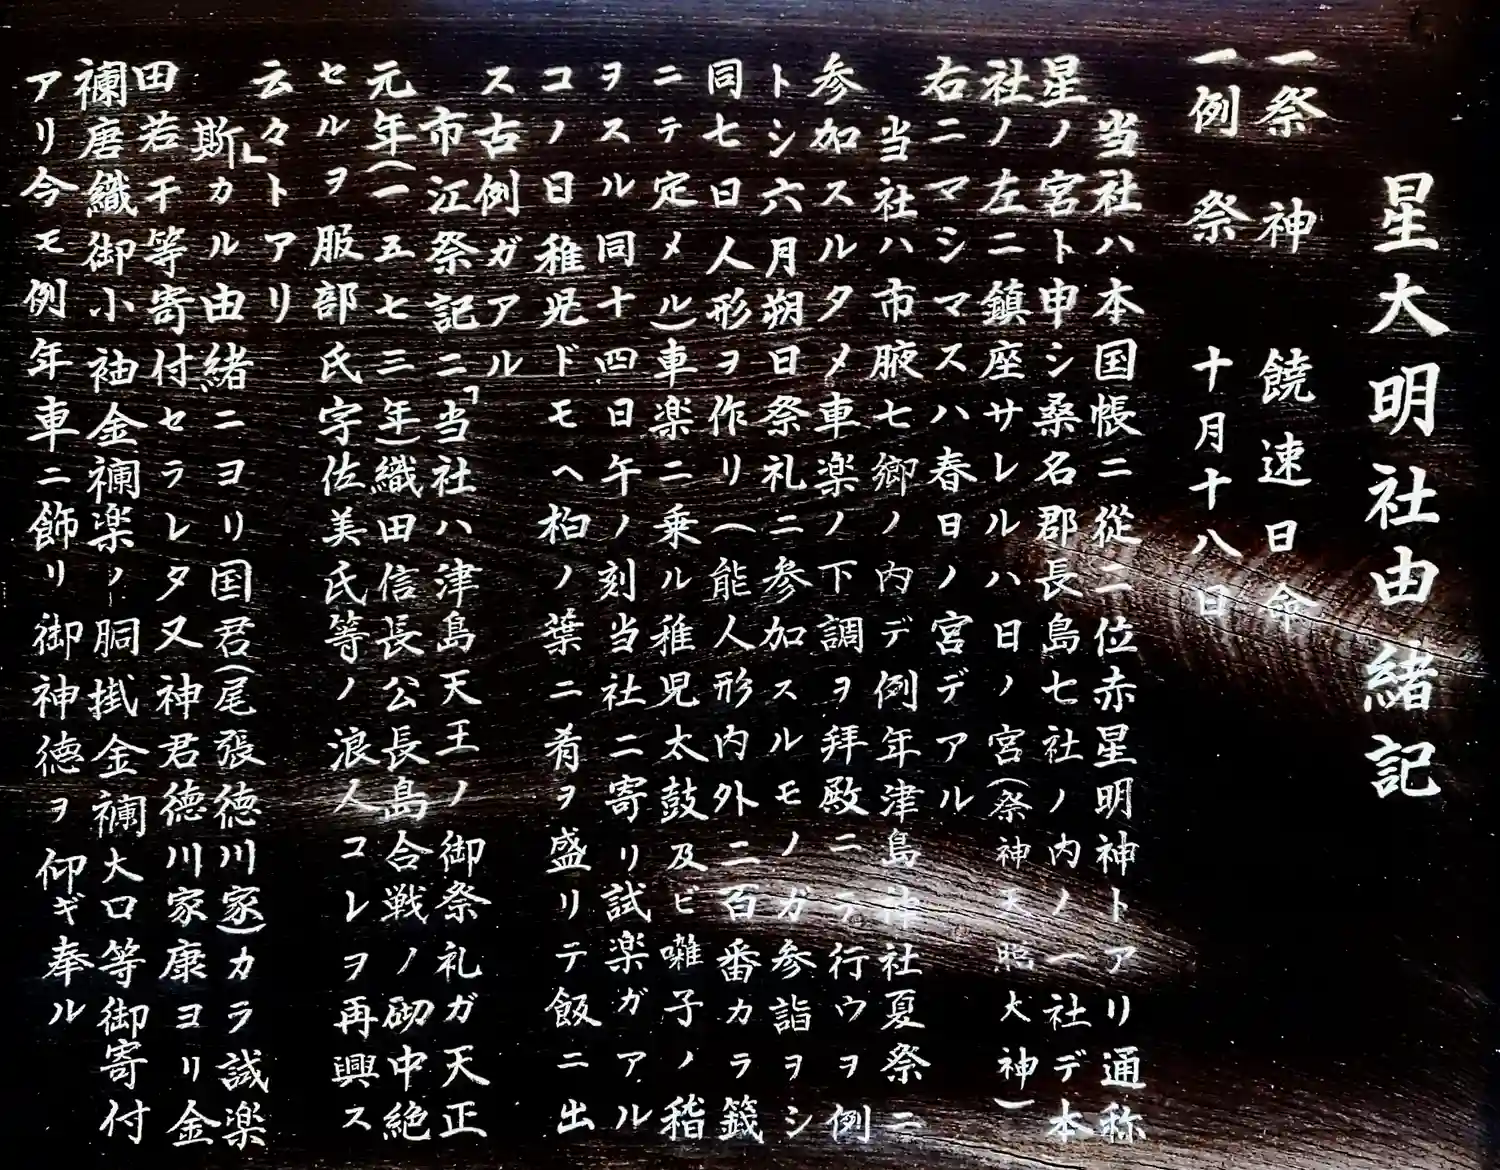 星大明社由緒記
一祭 神 饒速日命
一例 祭 十月十八日
当社ハ本国帳ニ從二位赤星明神トアリ通称
星ノ宮ト申シ桑名郡長島七社ノ内ノ一社デ本
社ノ左ニ鎮座サレルハ日ノ宮(祭神天照大神)
右ニマシマスハ春日ノ宮デアル
当社ハ市腋七郷ノ内デ例年津島神社夏祭ニ
参加スルタメ車楽ノ下調ヲ拝殿ニテ行ウヲ例
トシ六月朔日祭礼ニ参加スルモノガ参詣ヲシ
同七日人形ヲ作リ(能人形内外二百番カラ籤
ニテ定メル)車楽ニ乗ル稚児太鼓及ビ囃子ノ稽
ヲスル同十四日午ノ刻当社ニ寄リ試楽ガアル
コノ日稚児ドモヘ柏ノ葉ニ肴ヲ盛リテ飯ニ出
ス古例ガアル
市江祭記ニ「当社ハ津島天王ノ御祭礼ガ天正
元年(一五七三年)織田信長公長島合戦ノ砌中絶
セルヲ服部氏宇佐美氏等ノ浪人コレヲ再興ス
云々」トアリ
斯カル由緒ニヨリ国君(尾張徳川家)カラ試楽
田若干等寄付セラレタ又神君徳川家康ヨリ金
襴唐織御小袖金襴楽ノ胴掛金襴大口等御寄付
アリ今モ例年車ニ飾リ御神徳ヲ仰ギ奉ル